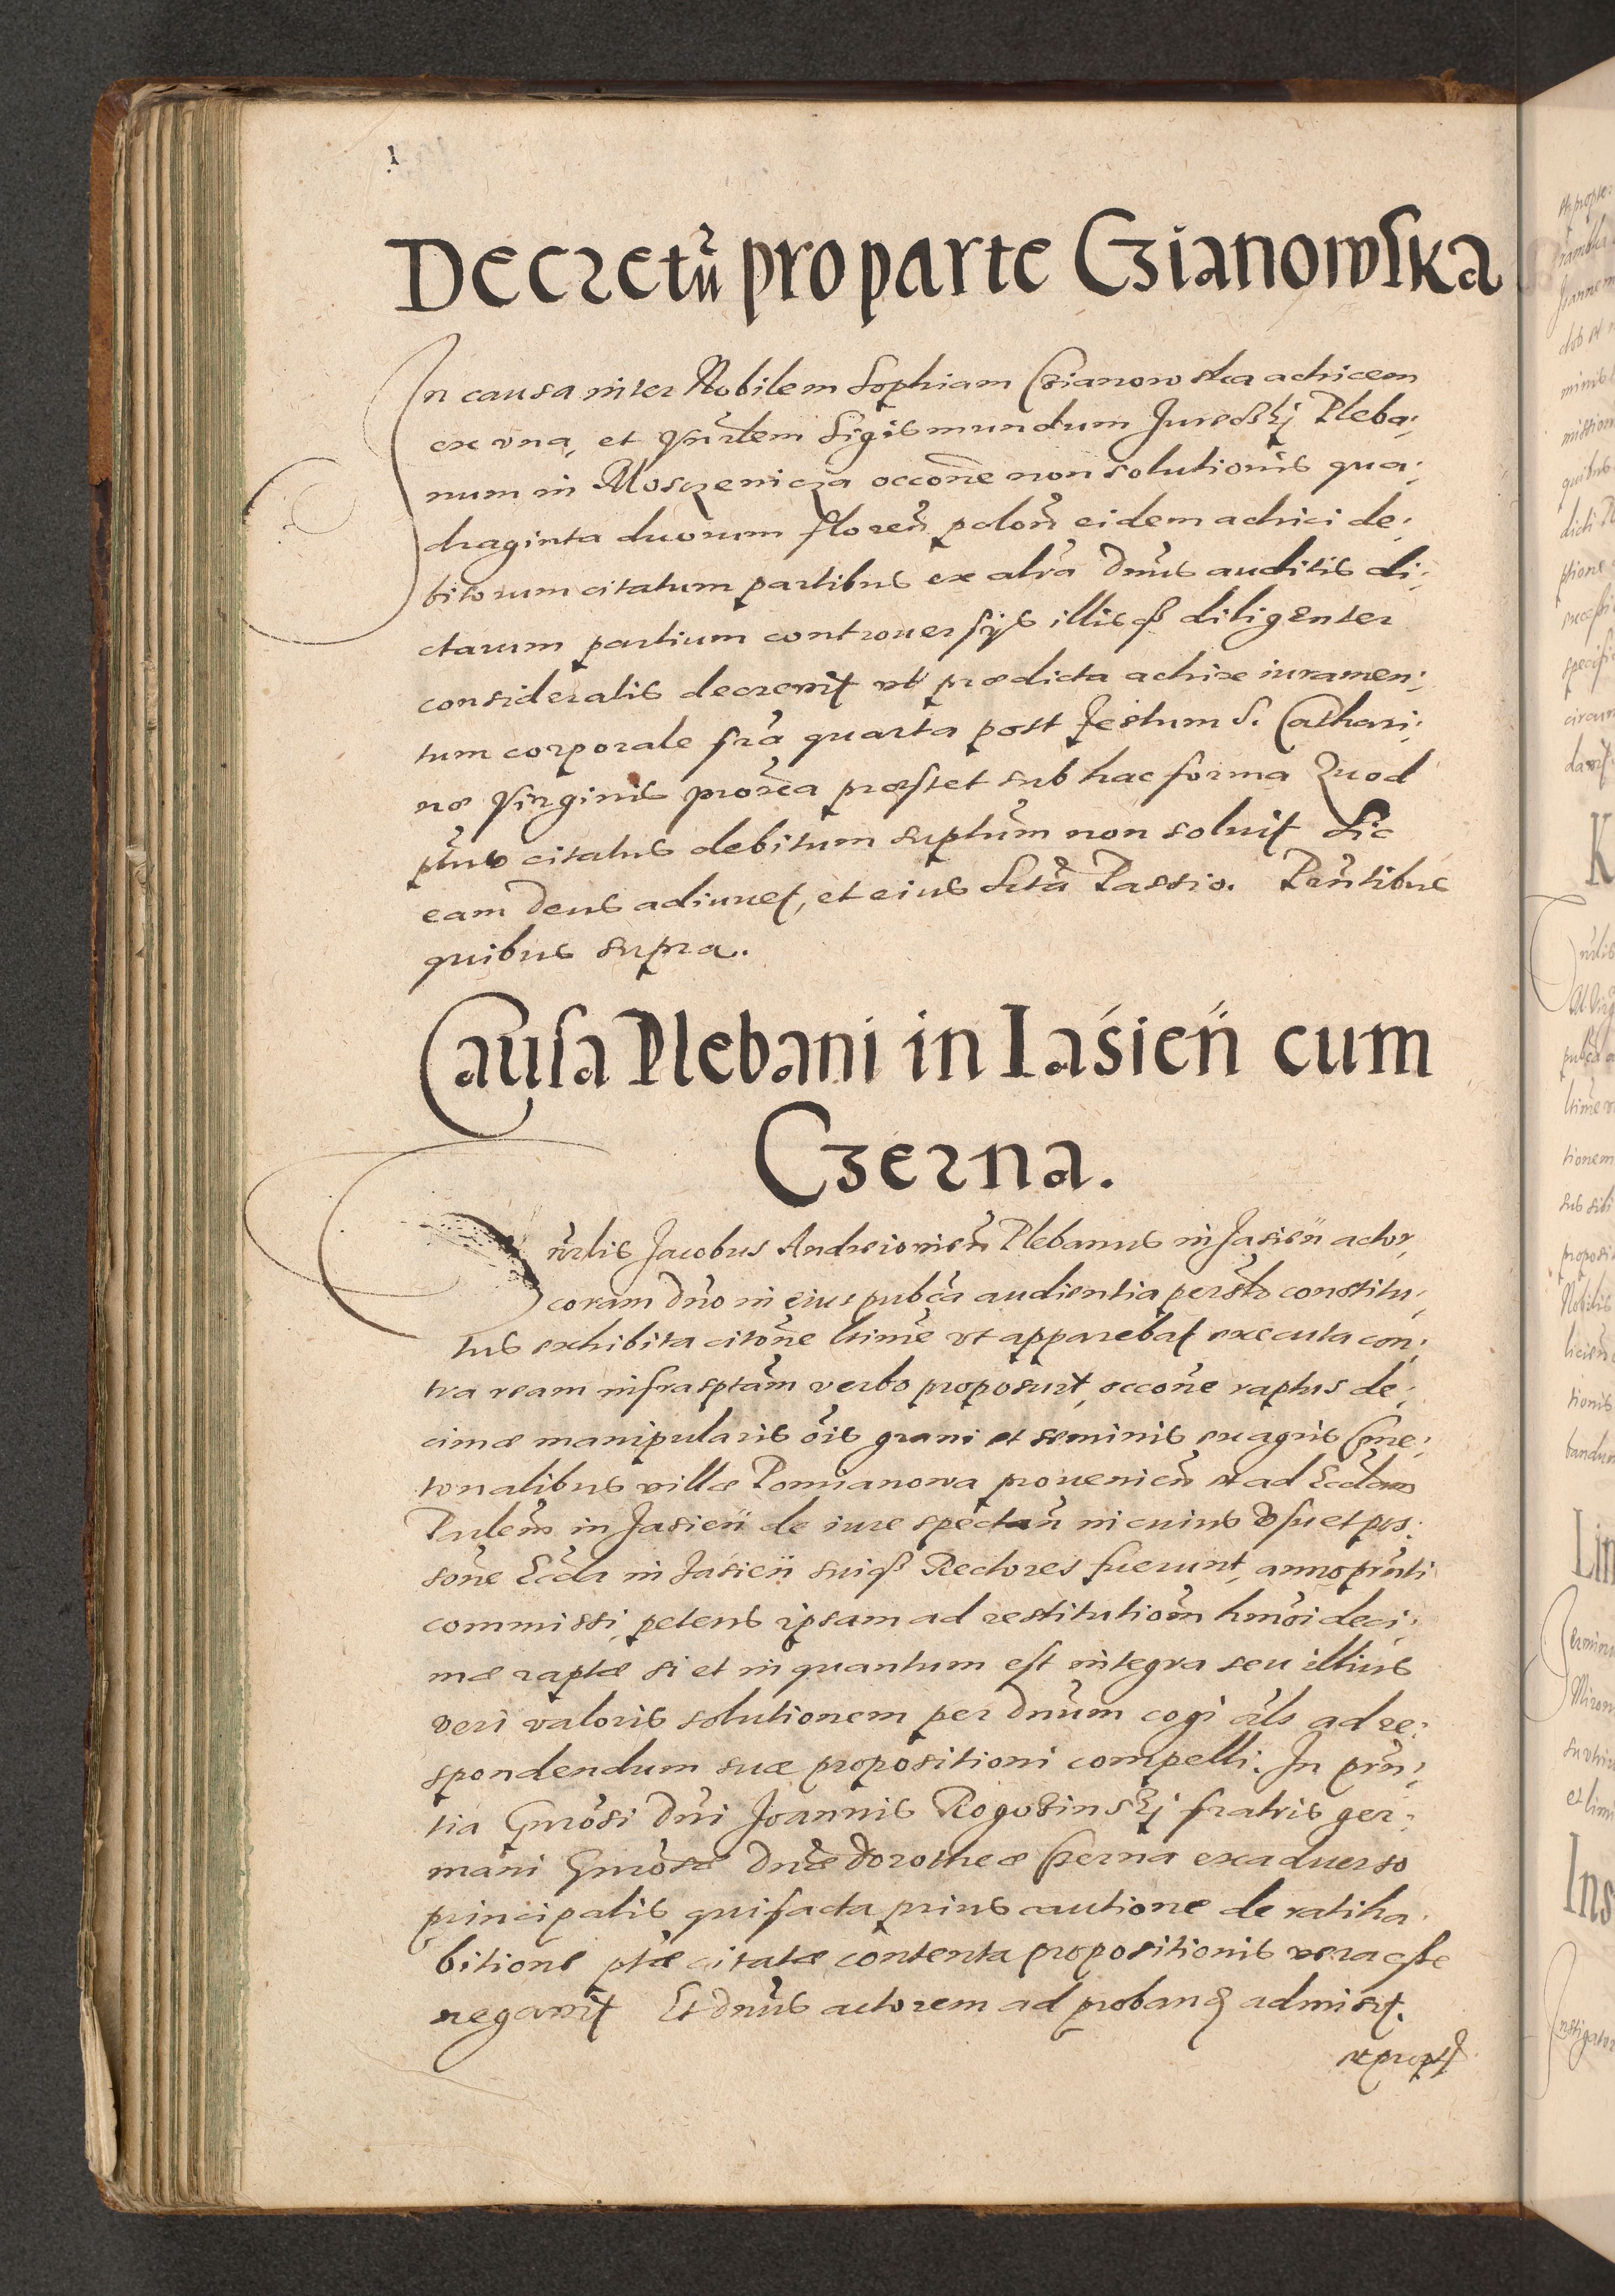 1
Decretū pro parte Czianowska
In causa inter Nobilem Sophiam Czianowska actricem
ex vna, et Vnrłem Sigismundum Jureczkj Pleba:
num in Mosczenicza occoñe non solutionis qua:
draginta duorum floreñ poloñ eidem actrici de:
bitorum citatum partibus ex alřa Dnus auditis di:
ctarum partium controuersijs illisq3 diligenter
consideratis decrevit vt prædicta actrix iuramen:
tum corporale fřia quarta post Festum S. Cathari:
næ Virginis proxĩa præstet sub hac forma Quod
ptus citatus debitum suptũm non soluit Sic
eam Deus adiuuet, et eius Sctã Passio. Pñtibus
quibus supra.
Causa Plebani in Iasień cum
Czerna.
Vnrlis Jacobus Andreiouień Plebanus in Jasień actor,
coram Dño in eius pubča audientia persłr constitu:
tus exhibita citoñe ltime vt apparebat executa con:
tra ream infrasptam verbo proposuit, occoñe raptus de:
cimæ manipularis oïs grani et seminis ex agris Cme:
tonalibus villæ Pomianowa proueniẽn et ad Ecclam
Prlem in Jasień de iure spectañ in cuius vsu et pos:
soñe Eccla in Jasień suiq3 Rectores fuerunt, anno prñti
commissi, petens ipsam ad restitutiom hmõi deci:
mæ raptæ si et in quantum est integra seu illius
veri valoris solutionem per Dñum cogi als ad re:
spondendum suæ propositioni compelli. In prñ:
tia Gnrosi Dñi Joannis Rogozinskj fratris ger:
mani Gnrosæ Dñæ Dorotheæ Czerna ex aduerso
principalis qui facta prius cautione de ratiha:
bitione ptæ citatæ contenta propositionis vera esse
negavit Et Dñus actorem ad proband admisit.
et propt